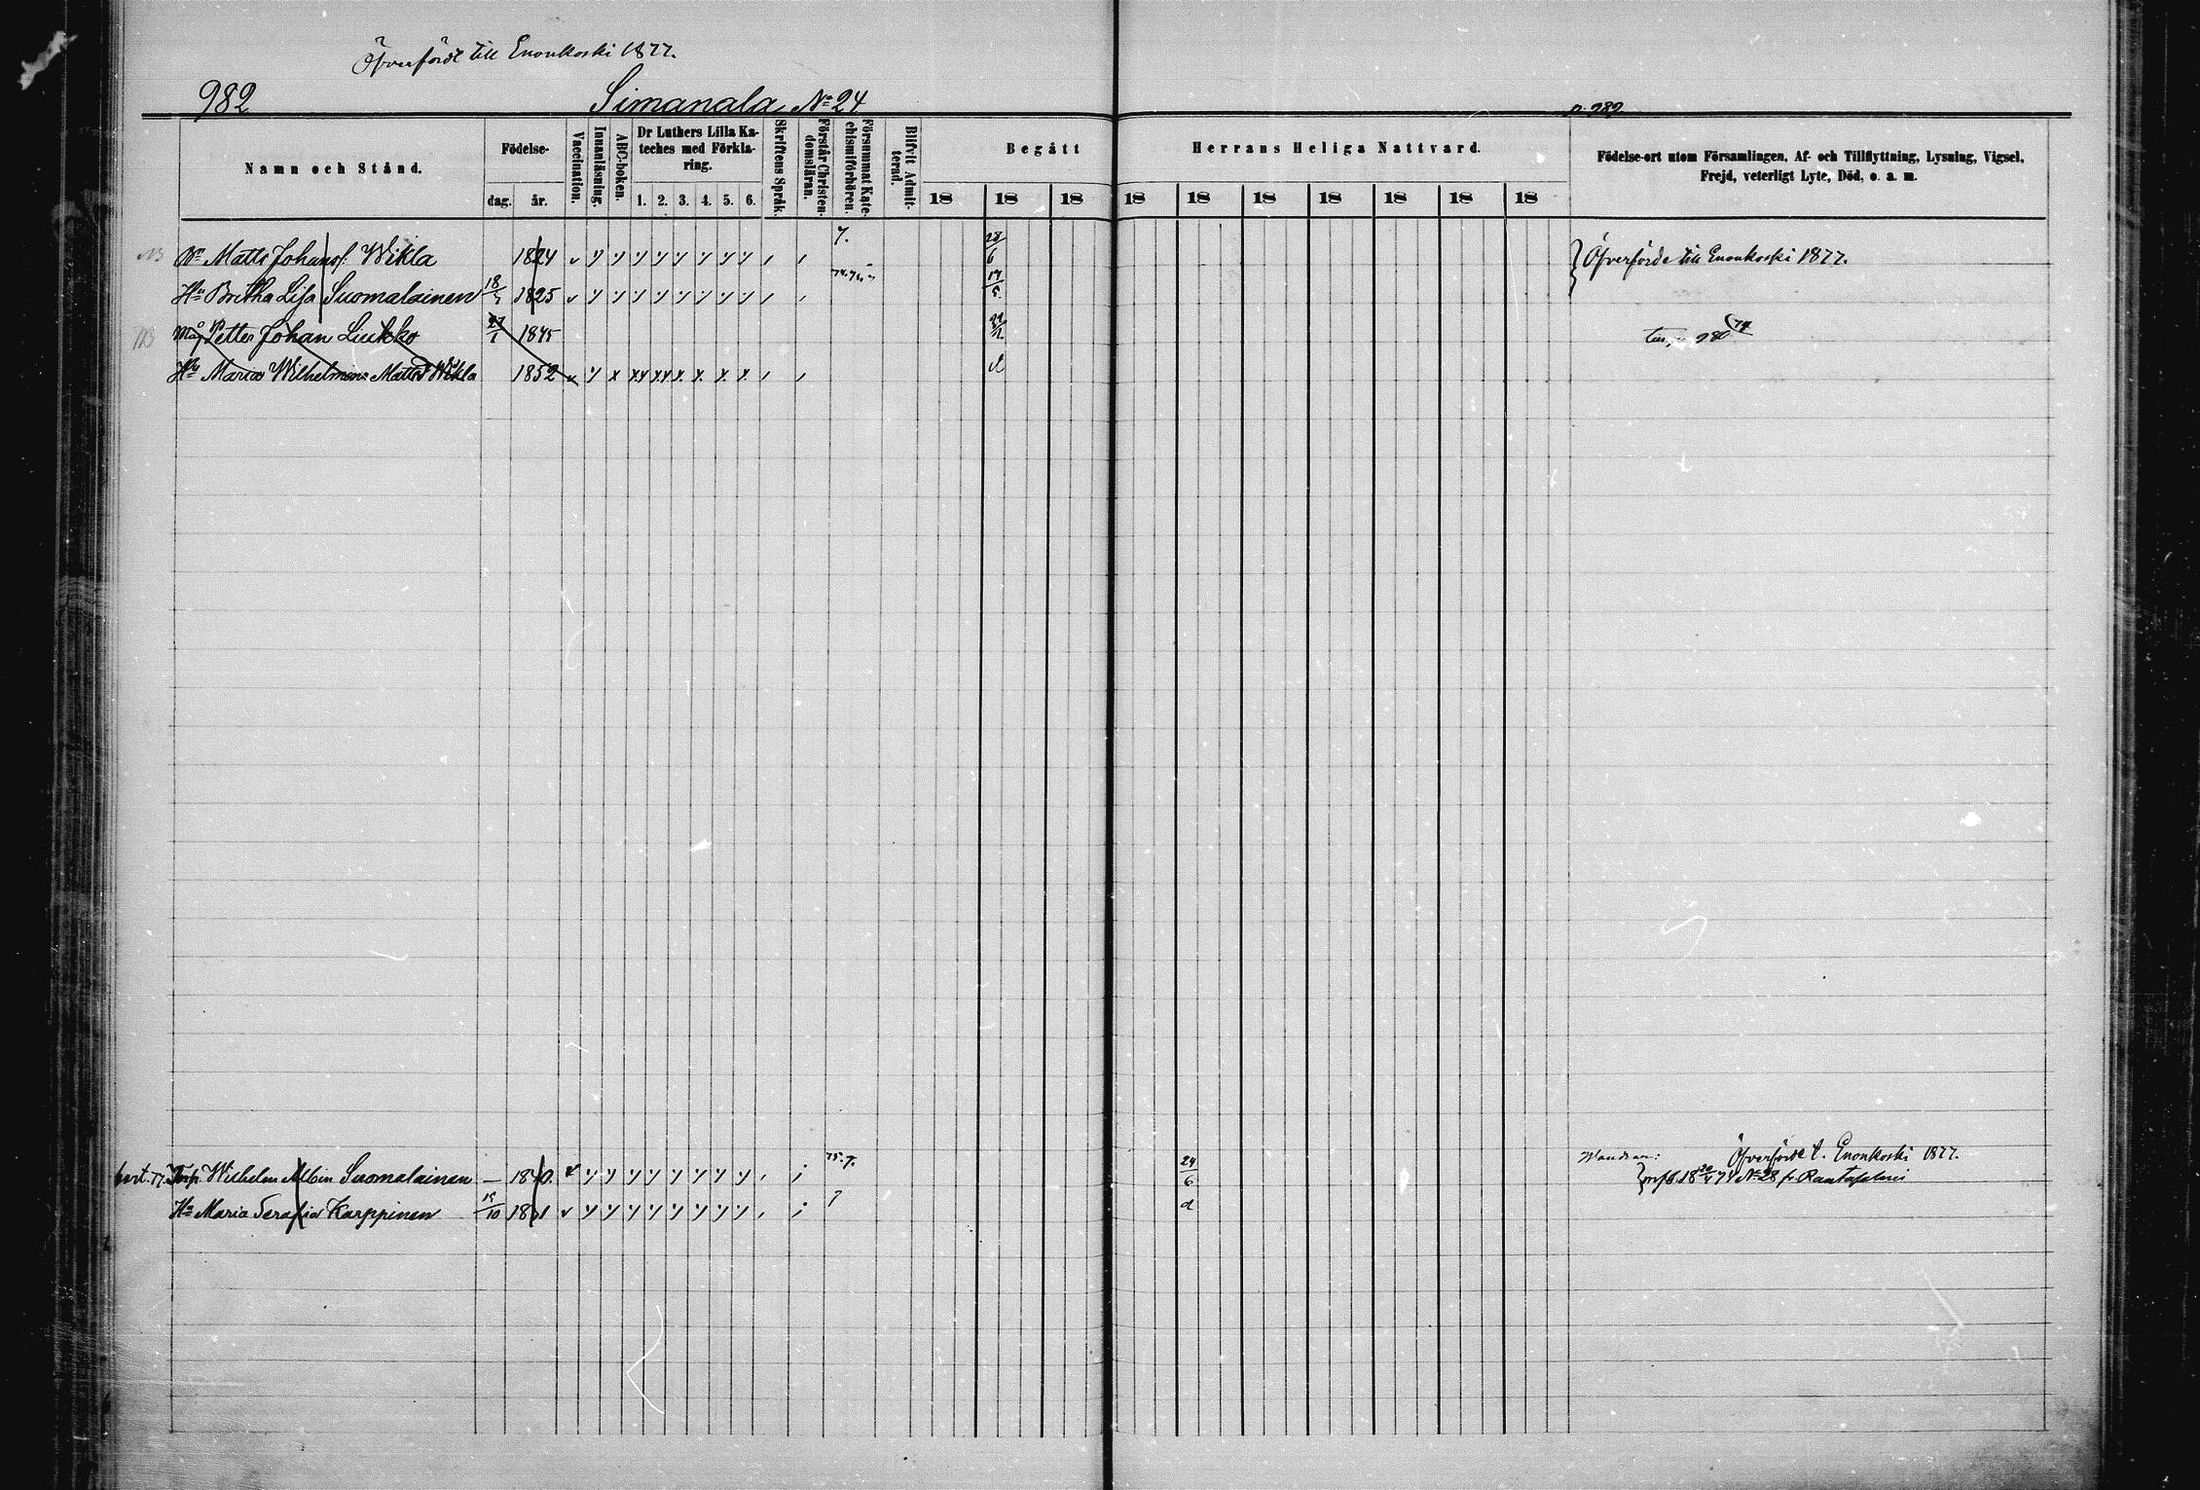 Öfverfördt till Enonkoski 1877.
982 Simanala № 24 p. 982
Namn och Stånd. Födelse- dag. år. Vaccination. Innanläsning. ABC-boken. Dr Luthers Lilla Kateches med Förklaring. 1. 2. 3. 4. 5. 6. Skriftens Språk. Förstår Christendomsläran. Försummat Katechismiförhören. Blifvit Admitterad. Begått Herrans Heliga Nattvard. 18 18 18 18 18 18 18 18 18 18 Födelse-ort utom Församlingen, Af- och Tillflyttning, Lysning, Vigsel, Frejd, veterligt Lyte, Död, o. a. m.
Matts Johans. Wikla 1824 7. 28/6 Öfverförde till Enonkoski 1877.
Hu Britha Lisa Suomalainen 18/7 1825 74.76.
Måg Petter Johan Luukko 27/1 1845 980
Hu Maria Wilhelmina Mattsd Wikla 1852 d
Torp. Wilhelm Albin Suomalainen — 1840. 75.7. 24/6 Öfverförde t. Enonkoski 1877.
74 № 28 fr. Rantasalmi
Hu Maria Serafia Karppinen 7 d